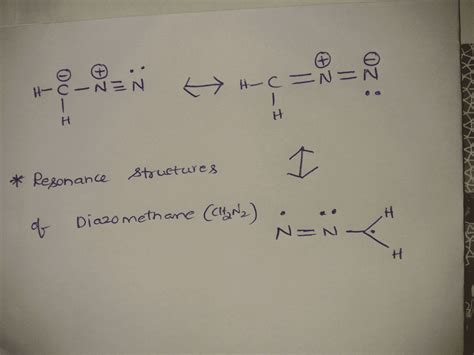 H-C-N≡N ↔ H-C=N=N
⊖ ⊕ ⊕ ⊖
H H
* Resonance structures
of Diazomethane (CH2N2)
N=N-C H
H